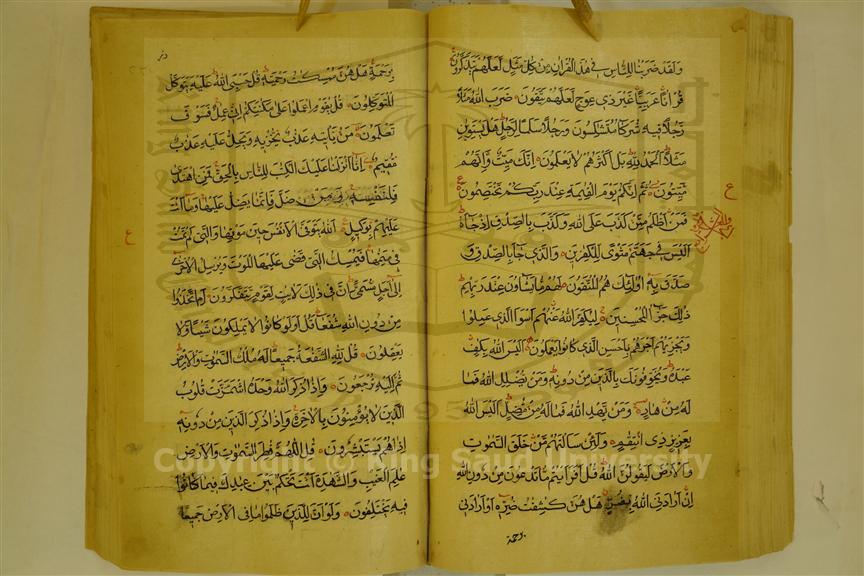 ولقد ضربنا للناس في هذا القران من كل مثل لعلهم يتذكرون
قرانا عربيا غير ذي عوج لعلهم يتقون ضرب الله مثلا
رجلا فيه شركا متشكسون ورجلا سلما لرجل هل يستوين
مثلا الحمد لله بل اكثرهم لا يعلمون انك ميت وانهم
ميتون ثم انكم يوم القيمة عند ربكم تختصمون
فمن اظلم ممن كذب على الله وكذب بالصدق اذ جاه
اليس في جهنم مثوى للكفرين والذي جا بالصدق و
صدق به اولئك هم المتقون لهم ما يشاون عند ربهم
ذلك جزا المحسنين ليكفر الله عنهم اسوا الذي عملوا
ويجزيهم اجرهم باحسن الذي كانوا يعملون اليس الله بكاف
عبده ويخوفونك بالذين من دونه ومن يضلل الله فما
له من هاد ومن يهد الله فما له من مضل اليس الله
بعزيز ذي انتقام ولئن سالتهم من خلق السموت
والارض ليقولن الله قل افرايتم ما تدعون من دون الله
ان ارادني الله بضر هل هن كشفت ضره او ارادني
برحمة
برحمة هل هن ممسكت رحمته قل حسبي الله عليه يتوكل
المتوكلون قل يقوم اعملوا على مكانتكم اني عمل فسوف
تعلمون من ياتيه عذاب يخزيه ويحل عليه عذاب
مقيم انا انزلنا عليك الكتب للناس بالحق فمن اهتدى
فلنفسه ومن ضل فانما يضل عليها وما انت
عليهم بوكيل الله يتوفى الانفس حين موتها والتي لم تمت
في منامها فيمسك التي قضى عليها الموت ويرسل الاخرى
الى اجل مسمى ان في ذلك لايت لقوم يتفكرون ام اتخذوا
من دون الله شفعا قل اولو كانوا لا يملكون شيا ولا
يعقلون قل لله الشفعة جميعا له ملك السموت والارض
ثم اليه ترجعون واذا ذكر الله وحده اشمازت قلوب
الذين لا يومنون بالاخرة واذا ذكر الذين من دونه
اذا هم يستبشرون قل اللهم فطر السموت والارض
علم الغيب والشهدة انت تحكم بين عبادك فيما كانوا
فيه يختلفون ولو ان للذين ظلموا ما في الارض جميعا
ع
ع
Copyright © King Saud University